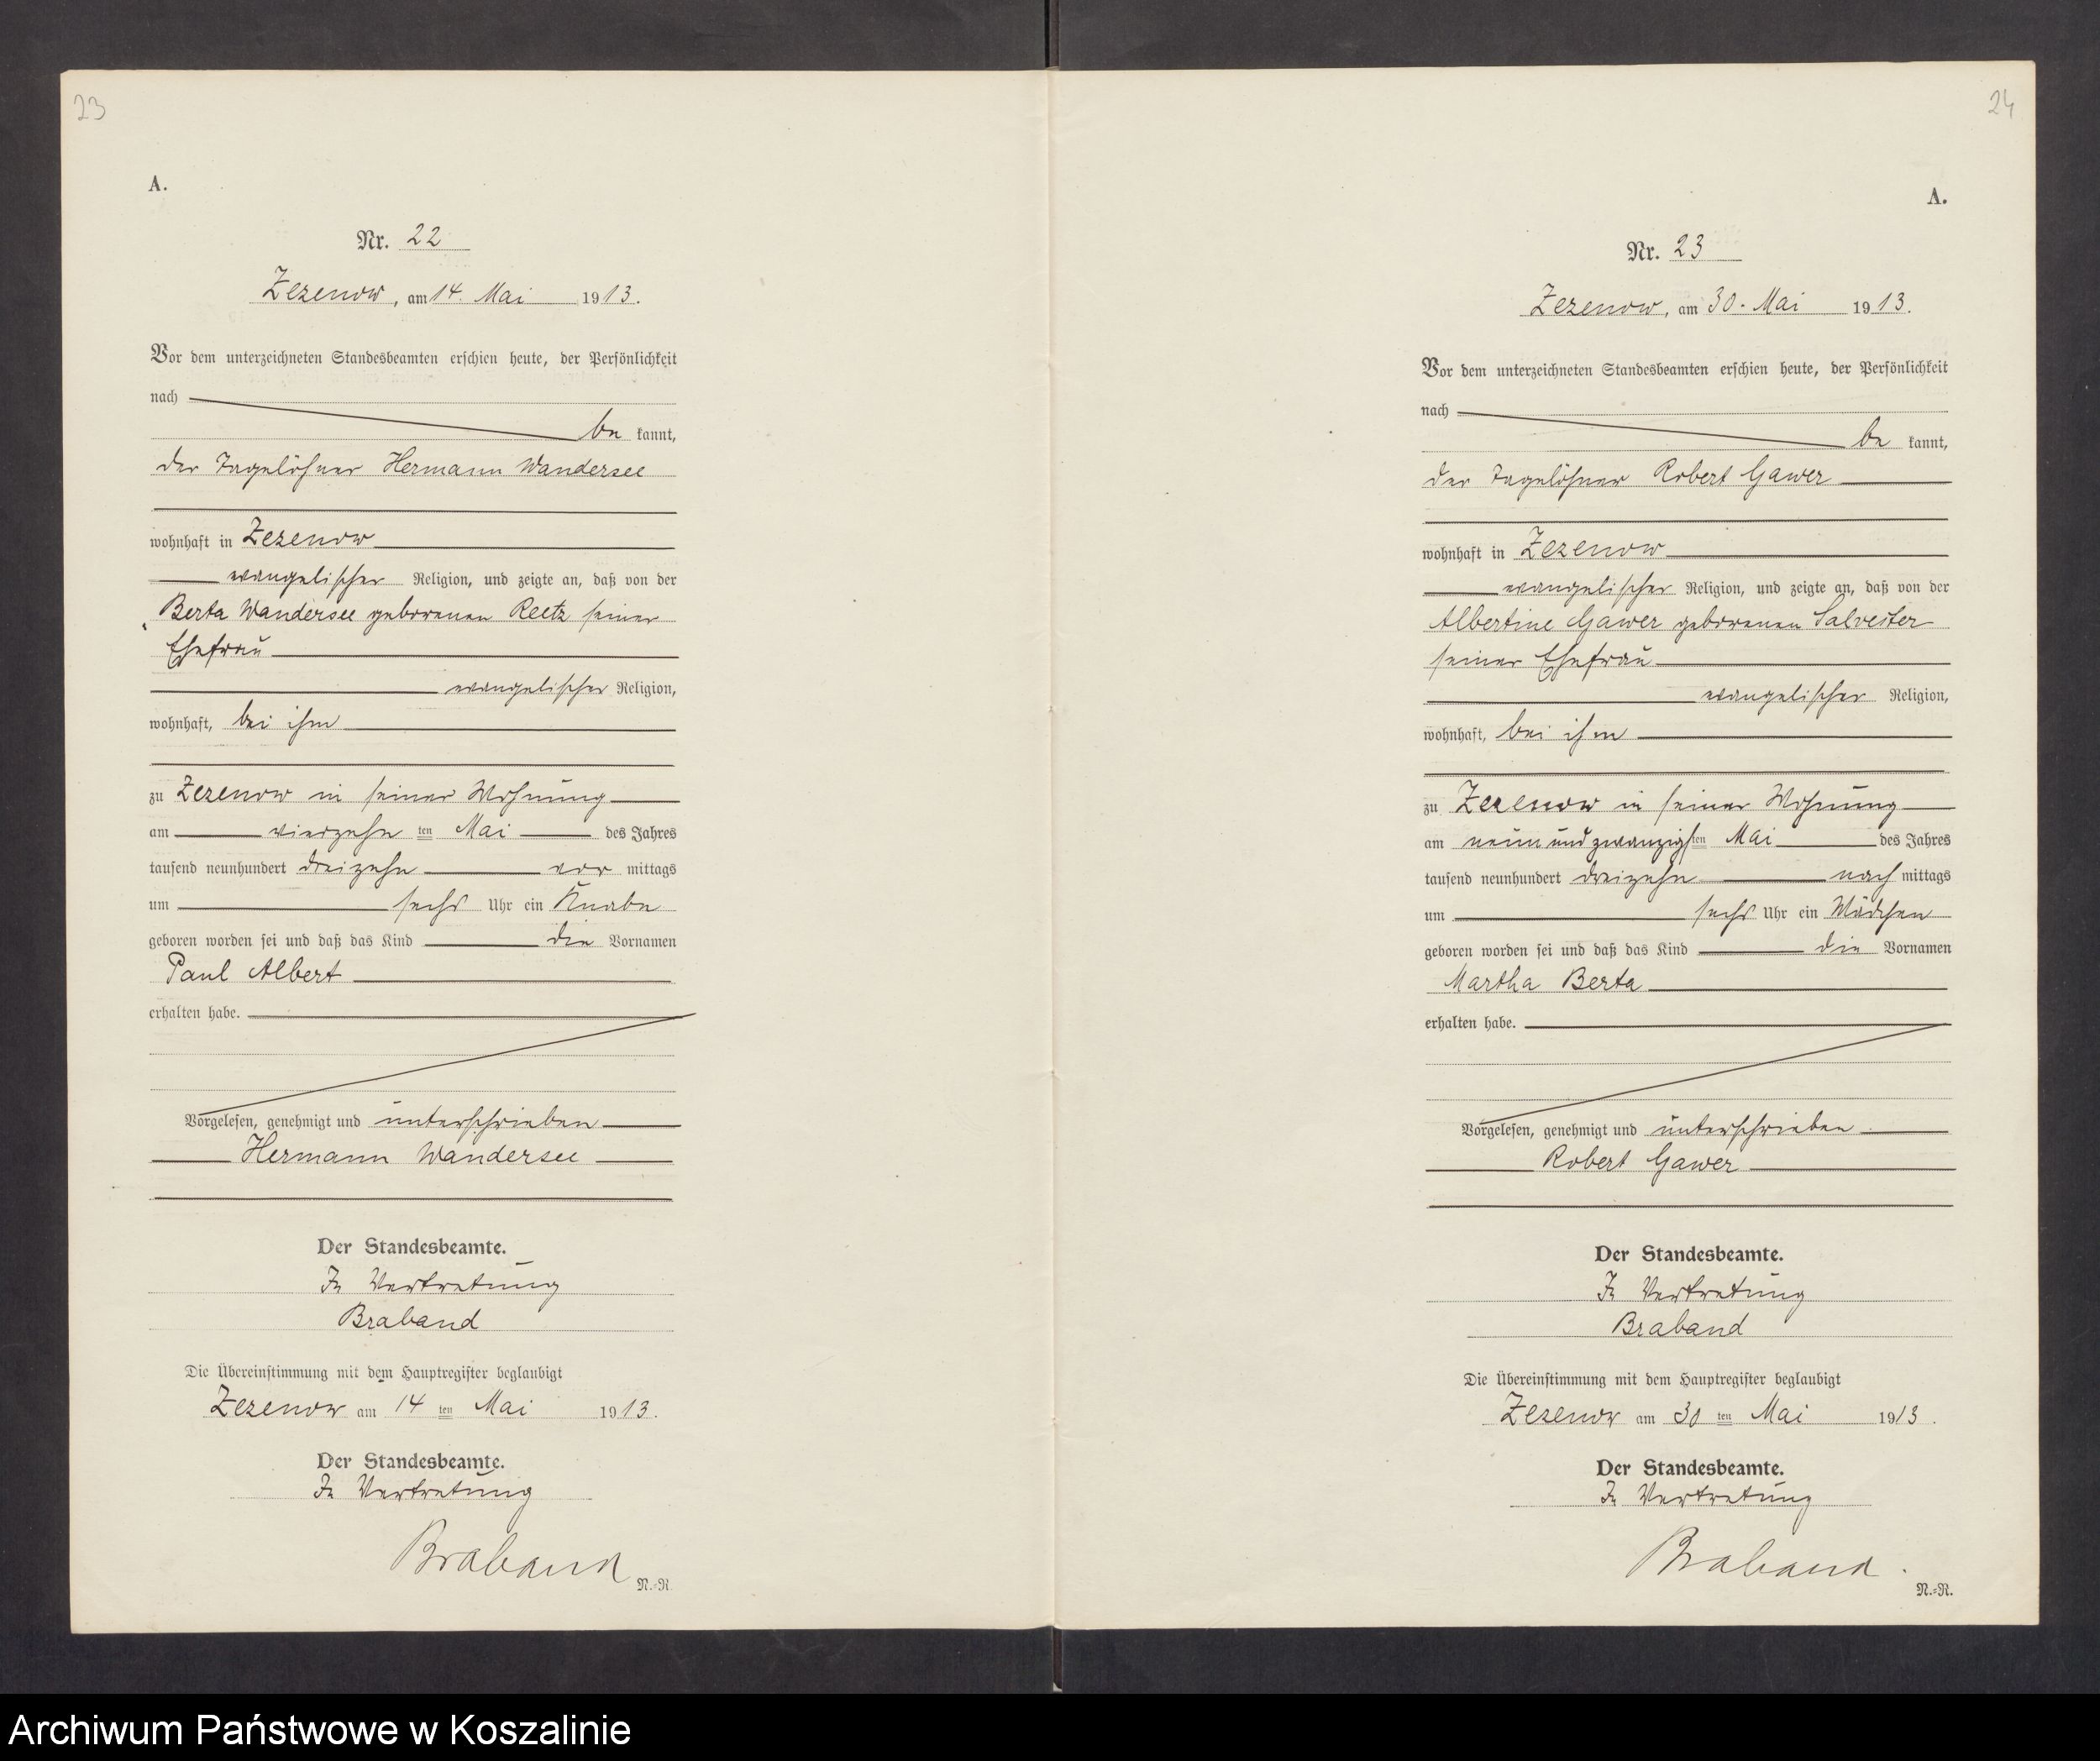 23
A.
Nr. 22
Zezenow, am 14. Mai 1913.
Vor dem unterzeichneten Standesbeamten erschien heute, der Persönlichkeit
nach
be kannt,
der Tagelöhner Hermann Wandersee
wohnhaft in Zezenow
evangelischer Religion, und zeigte an, daß von der
Berta Wandersee geborenen Reetz seiner
Ehefrau
evangelischer Religion,
wohnhaft, bei ihm
zu Zezenow in seiner Wohnung
am vierzehn ten Mai des Jahres
tausend neunhundert dreizehn vor mittags
um sechs Uhr ein Knabe
geboren worden sei und daß das Kind die Vornamen
Paul Albert
erhalten habe.
Vorgelesen, genehmigt und unterschrieben
Hermann Wandersee
Der Standesbeamte.
In Vertretung
Braband
Die Übereinstimmung mit dem Hauptregister beglaubigt
Zezenow am 14 ten Mai 1913.
Der Standesbeamte.
In Vertretung
Braband
N.=R.
24
A.
Nr. 23
Zezenow, am 30. Mai 1913.
Vor dem unterzeichneten Standesbeamten erschien heute, der Persönlichkeit
nach
be kannt,
der Tagelöhner Robert Gawer
wohnhaft in Zezenow
evangelischer Religion, und zeigte an, daß von der
Albertine Gawer geborenen Salvester
seiner Ehefrau
evangelischer Religion,
wohnhaft, bei ihm
zu Zezenow in seiner Wohnung
am neunundzwanzigsten Mai des Jahres
tausend neunhundert dreizehn nach mittags
um sechs Uhr ein Mädchen
geboren worden sei und daß das Kind die Vornamen
Martha Berta
erhalten habe.
Vorgelesen, genehmigt und unterschrieben
Robert Gawer
Der Standesbeamte.
In Vertretung
Braband
Die Übereinstimmung mit dem Hauptregister beglaubigt
Zezenow am 30 ten Mai 1913.
Der Standesbeamte.
In Vertretung
Braband.
N.=R.
Archiwum Państwowe w Koszalinie